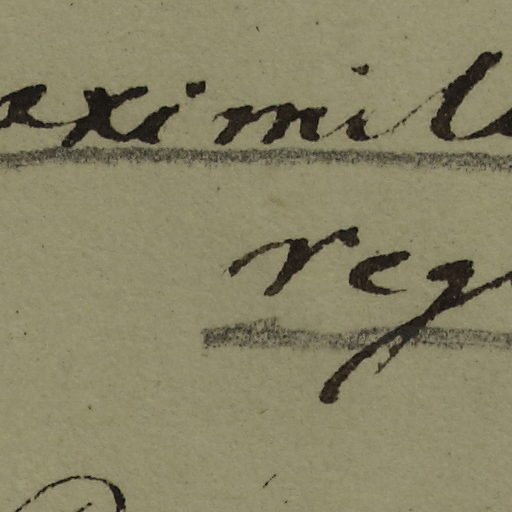 aximil
reg